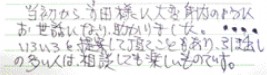 当初から吉田様に大変身内のように
お世話になり、助かりました。
いろいろと提案して頂くこともあり、引き出し
の多い人は、相談しても楽しいものです。